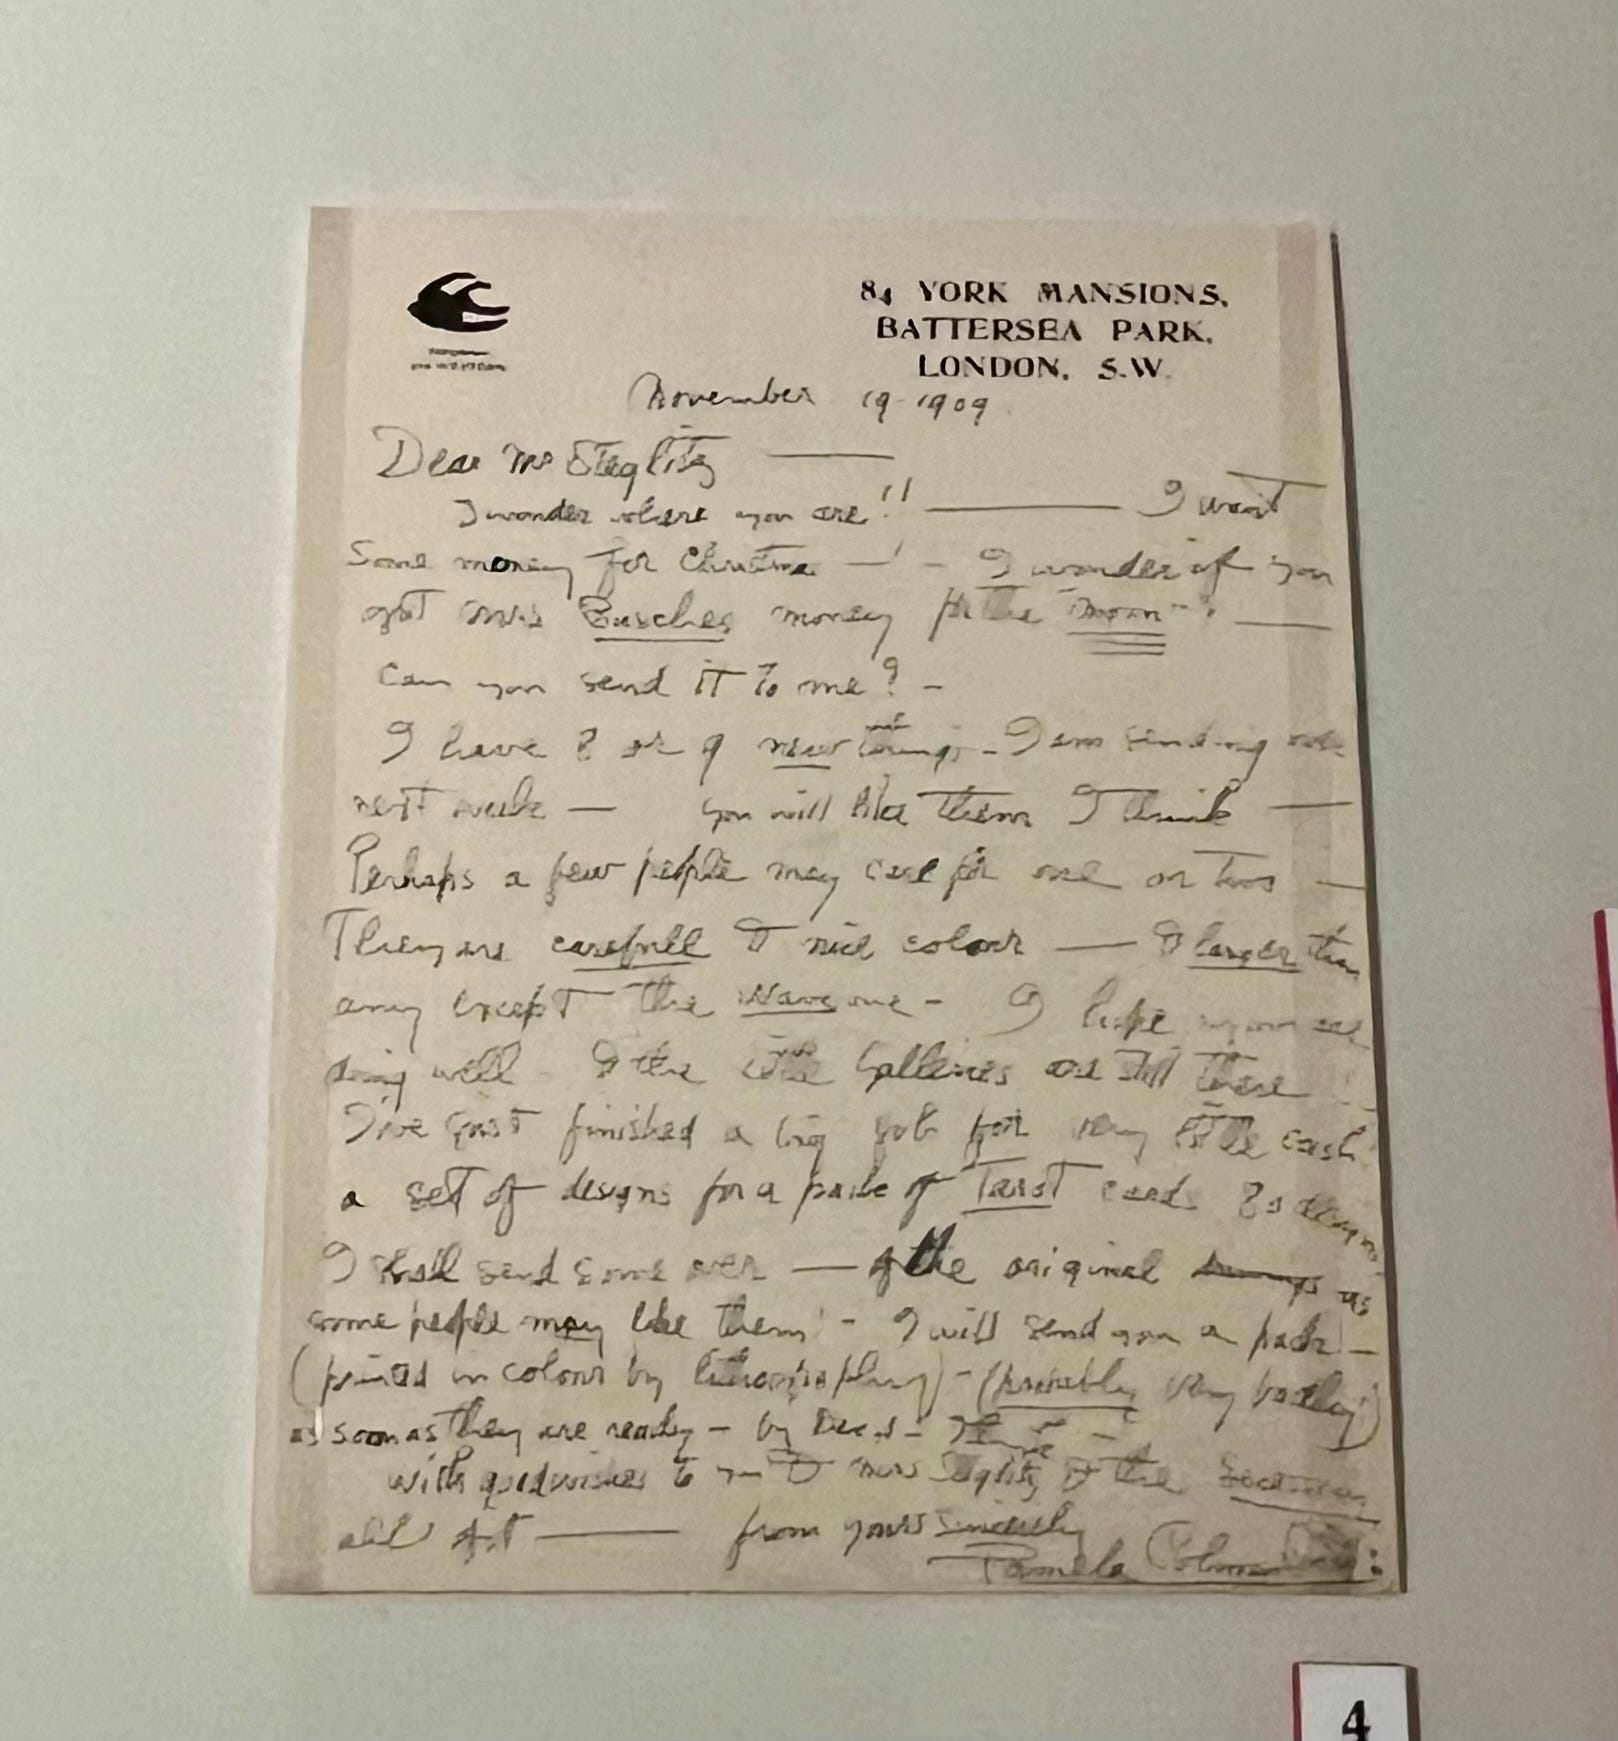 84 YORK MANSIONS,
BATTERSEA PARK,
LONDON, S.W.
November 19-1909
Dear Mr Steglitz —
I wonder where you are!! — I want
Some money for Christmas —! - I wonder if you
got mrs Busches money for the "moon" —
can you send it to me? -
I have 8 or 9 new things - I am sending
next week — you will like them I think —
Perhaps a few people may care for one or two —
They are carefull & nice colour — & larger than
any except the Wave one - I hope you are
doing well & the little Galleries are still there
I've just finished a big job for very little cash!
a set of designs for a pack of Tarot cards 80
I shall send some over — of the original as
some people may like them! - I will send you a pack -
(printed in colour by lithography) - (probably very badly!)
as soon as they are ready - by Dec. 1 -
with good wishes to you & mrs Steglitz & the
all Art — from yours sincerely
Pamela Colman
4